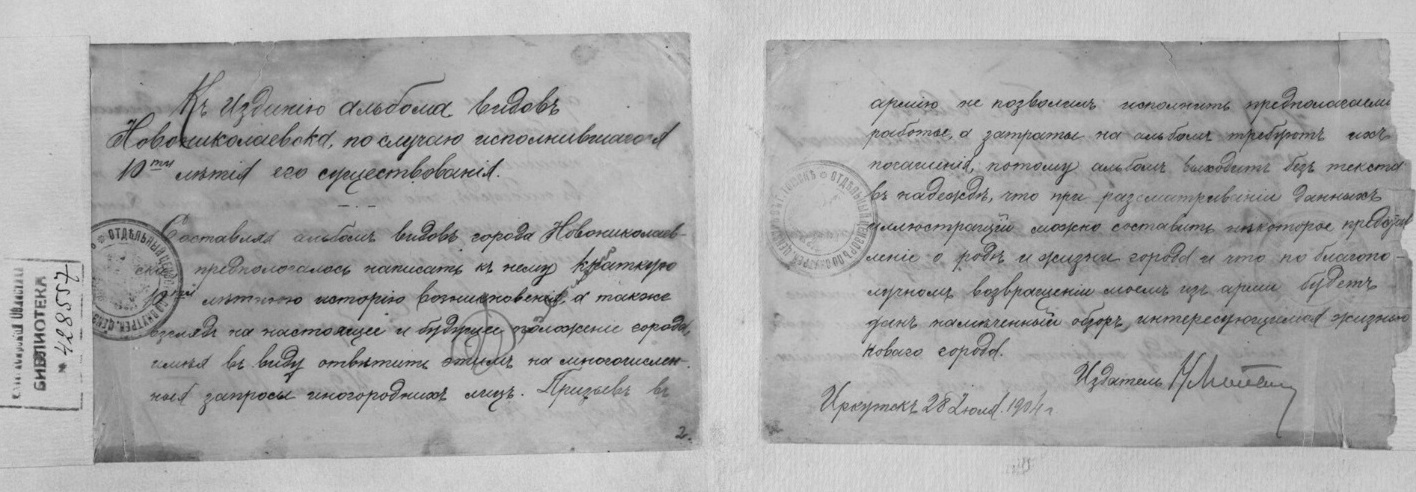 Къ изданію альбома видовъ
Новониколаевска, по случаю исполнившагося
10ти лѣтія его существованія.
Составляя альбомъ видовъ города Новониколаев-
ска, предполагалось написать къ нему краткую
10ти лѣтнюю исторію возникновенія, а также
взглядъ на настоящее и будущее положеніе города,
имѣя въ виду отвѣтить этимъ на многочислен-
ныя запросы иногороднихъ лицъ. Призывъ въ
2.
БИБЛИОТЕКА
№ 428557
армію не позволилъ исполнить предполагаемы
работы, а затраты на альбомъ требуютъ ихъ
погашенія, потому альбомъ выходитъ безъ текста
въ надеждѣ, что при разсматриваніи данныхъ
иллюстрацій можно составить нѣкоторое представ
леніе о ростѣ и жизни города и что по благопо-
лучномъ возвращеніи моемъ изъ арміи будетъ
данъ намѣченный обзоръ, интересующимся жизнью
новаго города.
Издатель
Иркутскъ 28 Іюля 1904 г
ОТДѢЛЬНЫЙ
ОТДѢЛЬНЫЙ